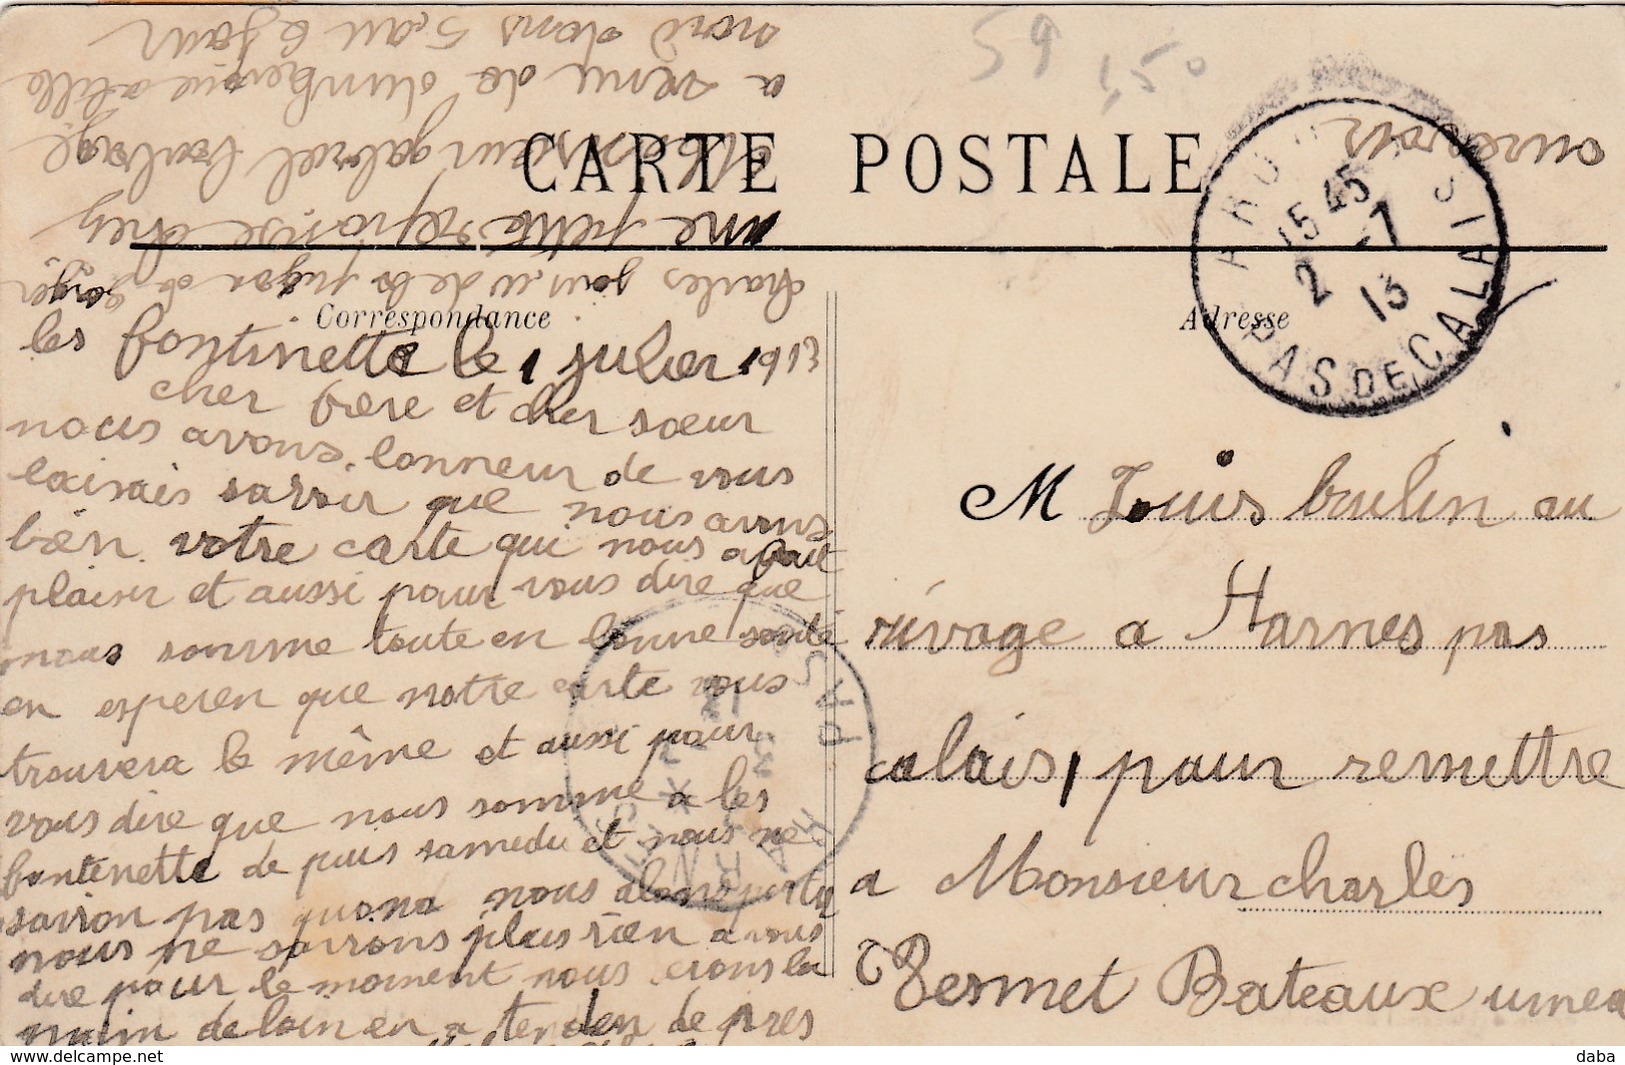 59
1,50
CARTE POSTALE
Correspondance
Adresse
15 45
2 -7
13
PAS DE CALAIS
les fontinette le 1 juiler 1913
cher frere et cher sœur
nous avons lonneur de vous
laisais savoir que nous avons
bien votre carte qui nous a
plaisir et aussi pour vous dire que
nous somme toute en bonne santé
en esperen que notre carte vous
trouvera le même et aussi pour
vous dire que nous somme a les
fontenette de puis samedu et nous ne
savron pas quona nous alons
nous ne savrons plus rien a vous
dire pour le moment nous crons la
main de loin en a tenden de pres
charles
une petite reponse chez
monsieur gabriel
a venu de dunkerque a lille
nord dans 5 au 6 jour
aurevoir
M Louis boulin au
rivage a Harnes pas
calais, pour remettre
a Monsieur charles
Vermet Bateaux
daba